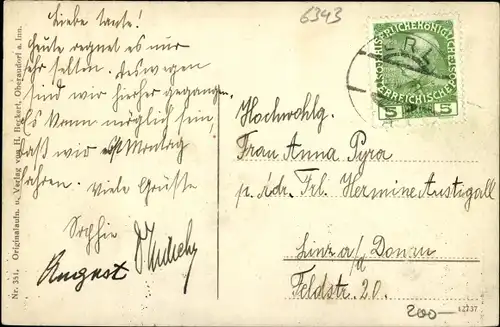 Liebe Tante!
Heute regnet es nur
sehr selten. Deswegen
sind wir hierher gegangen.
Es kann möglich sein,
daß wir Montag
fahren. Viele Grüße
Sophie
August
Nr. 351. Originalaufn. u. Verlag von H. Heckert, Oberaudorf a. Inn.
6343
KAISERLICHE KÖNIGLICHE
ÖSTERREICHISCHE
5 5
Hochwohlg.
Frau Anna Pyra
p. Adr. Frl. Hermine Austigall
Linz a/d Donau
Feldstr. 20.
200—
12737